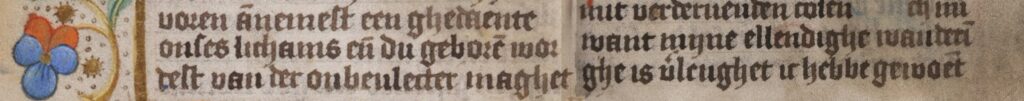 voren an̄emest een ghedaente
onses lichams en̄ du geborē wor
dest van der onbeulecter maghet
mit verderuenden colen ch mi
want myne ellendighe wanderī
ghe is v̄lenghet ic hebbe gewoēt